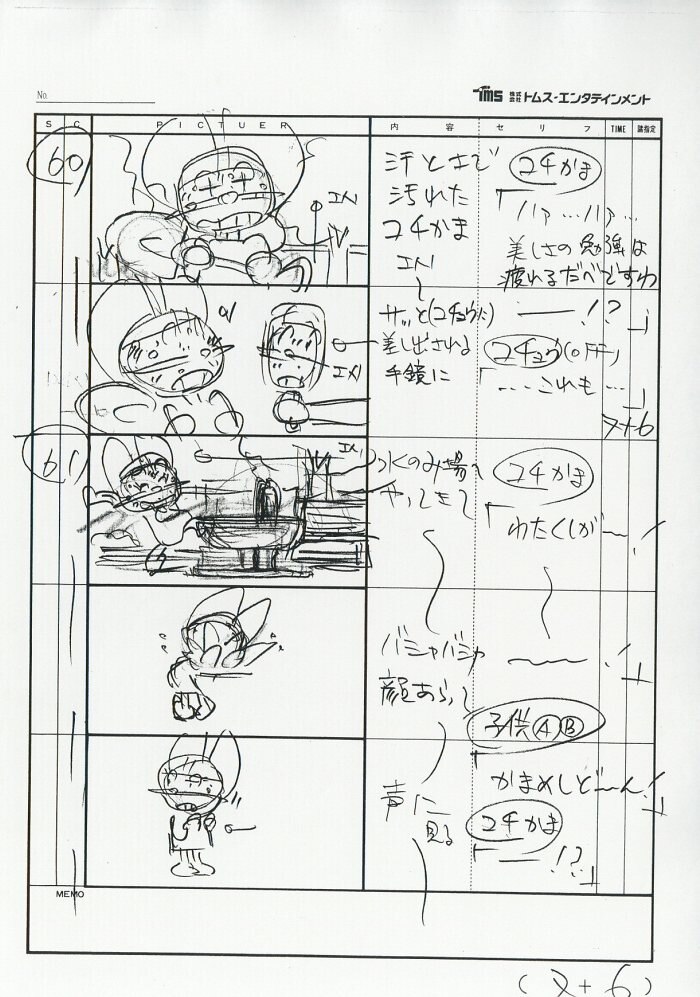 No.
TMS 株式会社 トムス・エンタテインメント
S C PICTUER 内容 セリフ TIME 諸指定
60
汗とさで
汚れた
コチかま
IN
コチかま
「ハァ…ハァ…
美しさの勉強は
疲れるだべですわ
IN
サッと(コチョウに)
差し出される
手鏡に
!?」
コチョウ(OFF)
「……これも…」
IN
7+6
61
水のみ場へ
やってきて
コチかま
「わたくしが〜!
IN
バシャバシャ
顔あらい
〜!」
子供ⒶⒷ
「かまめしどーん!」
声に
見る
コチかま
「―!?」
MEMO
(7+6)